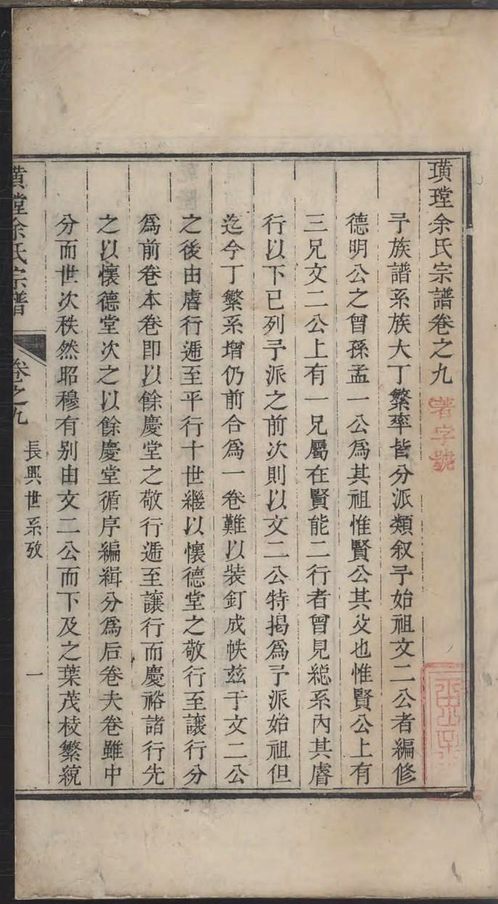 璜瑝余氏宗譜卷之九
予族譜系族大丁繁率皆分派類叙予始祖文二公者編修
德明公之曾孫孟一公爲其祖惟賢公其父也惟賢公上有
三兄文二公上有一兄屬在賢能二行者曾見總系內其膺
行以下已列予派之前次則以文二公特揭爲予派始祖但
迄今丁繁系增仍前合爲一卷難以裝釘成帙兹于文二公
之後由膺行遞至平行十世繼以懷德堂之敬行至讓行分
爲前卷本卷即以餘慶堂之敬行遞至讓行而慶裕諸行先
之以懷德堂次之以餘慶堂循序編緝分爲后卷夫卷雖中
分而世次秩然昭穆有别由文二公而下及之葉茂枝繁統
璜瑝余氏宗譜
卷之九
長興世系攷
一